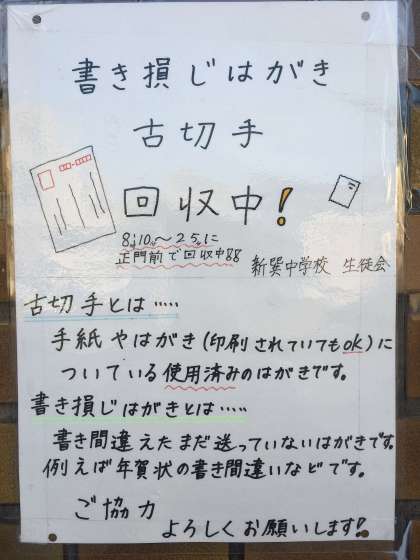 書き損じはがき
古切手
回収中!
8:10〜25に
正門前で回収中!!
新巽中学校 生徒会
古切手とは‥‥‥
手紙やはがき(印刷されていてもok)に
ついている使用済みのはがきです。
書き損じはがきとは‥‥‥
書き間違えたまだ送っていないはがきです。
例えば年賀状の書き間違いなどです。
ご協力
よろしくお願いします!!